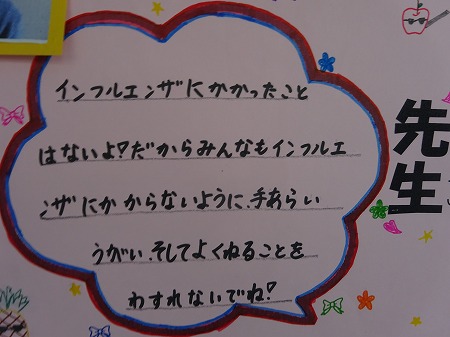 インフルエンザにかかったこと
はないよ!だからみんなもインフルエ
ンザにかからないように、手あらい
うがい、そしてよくねることを
わすれないでね!
先
生